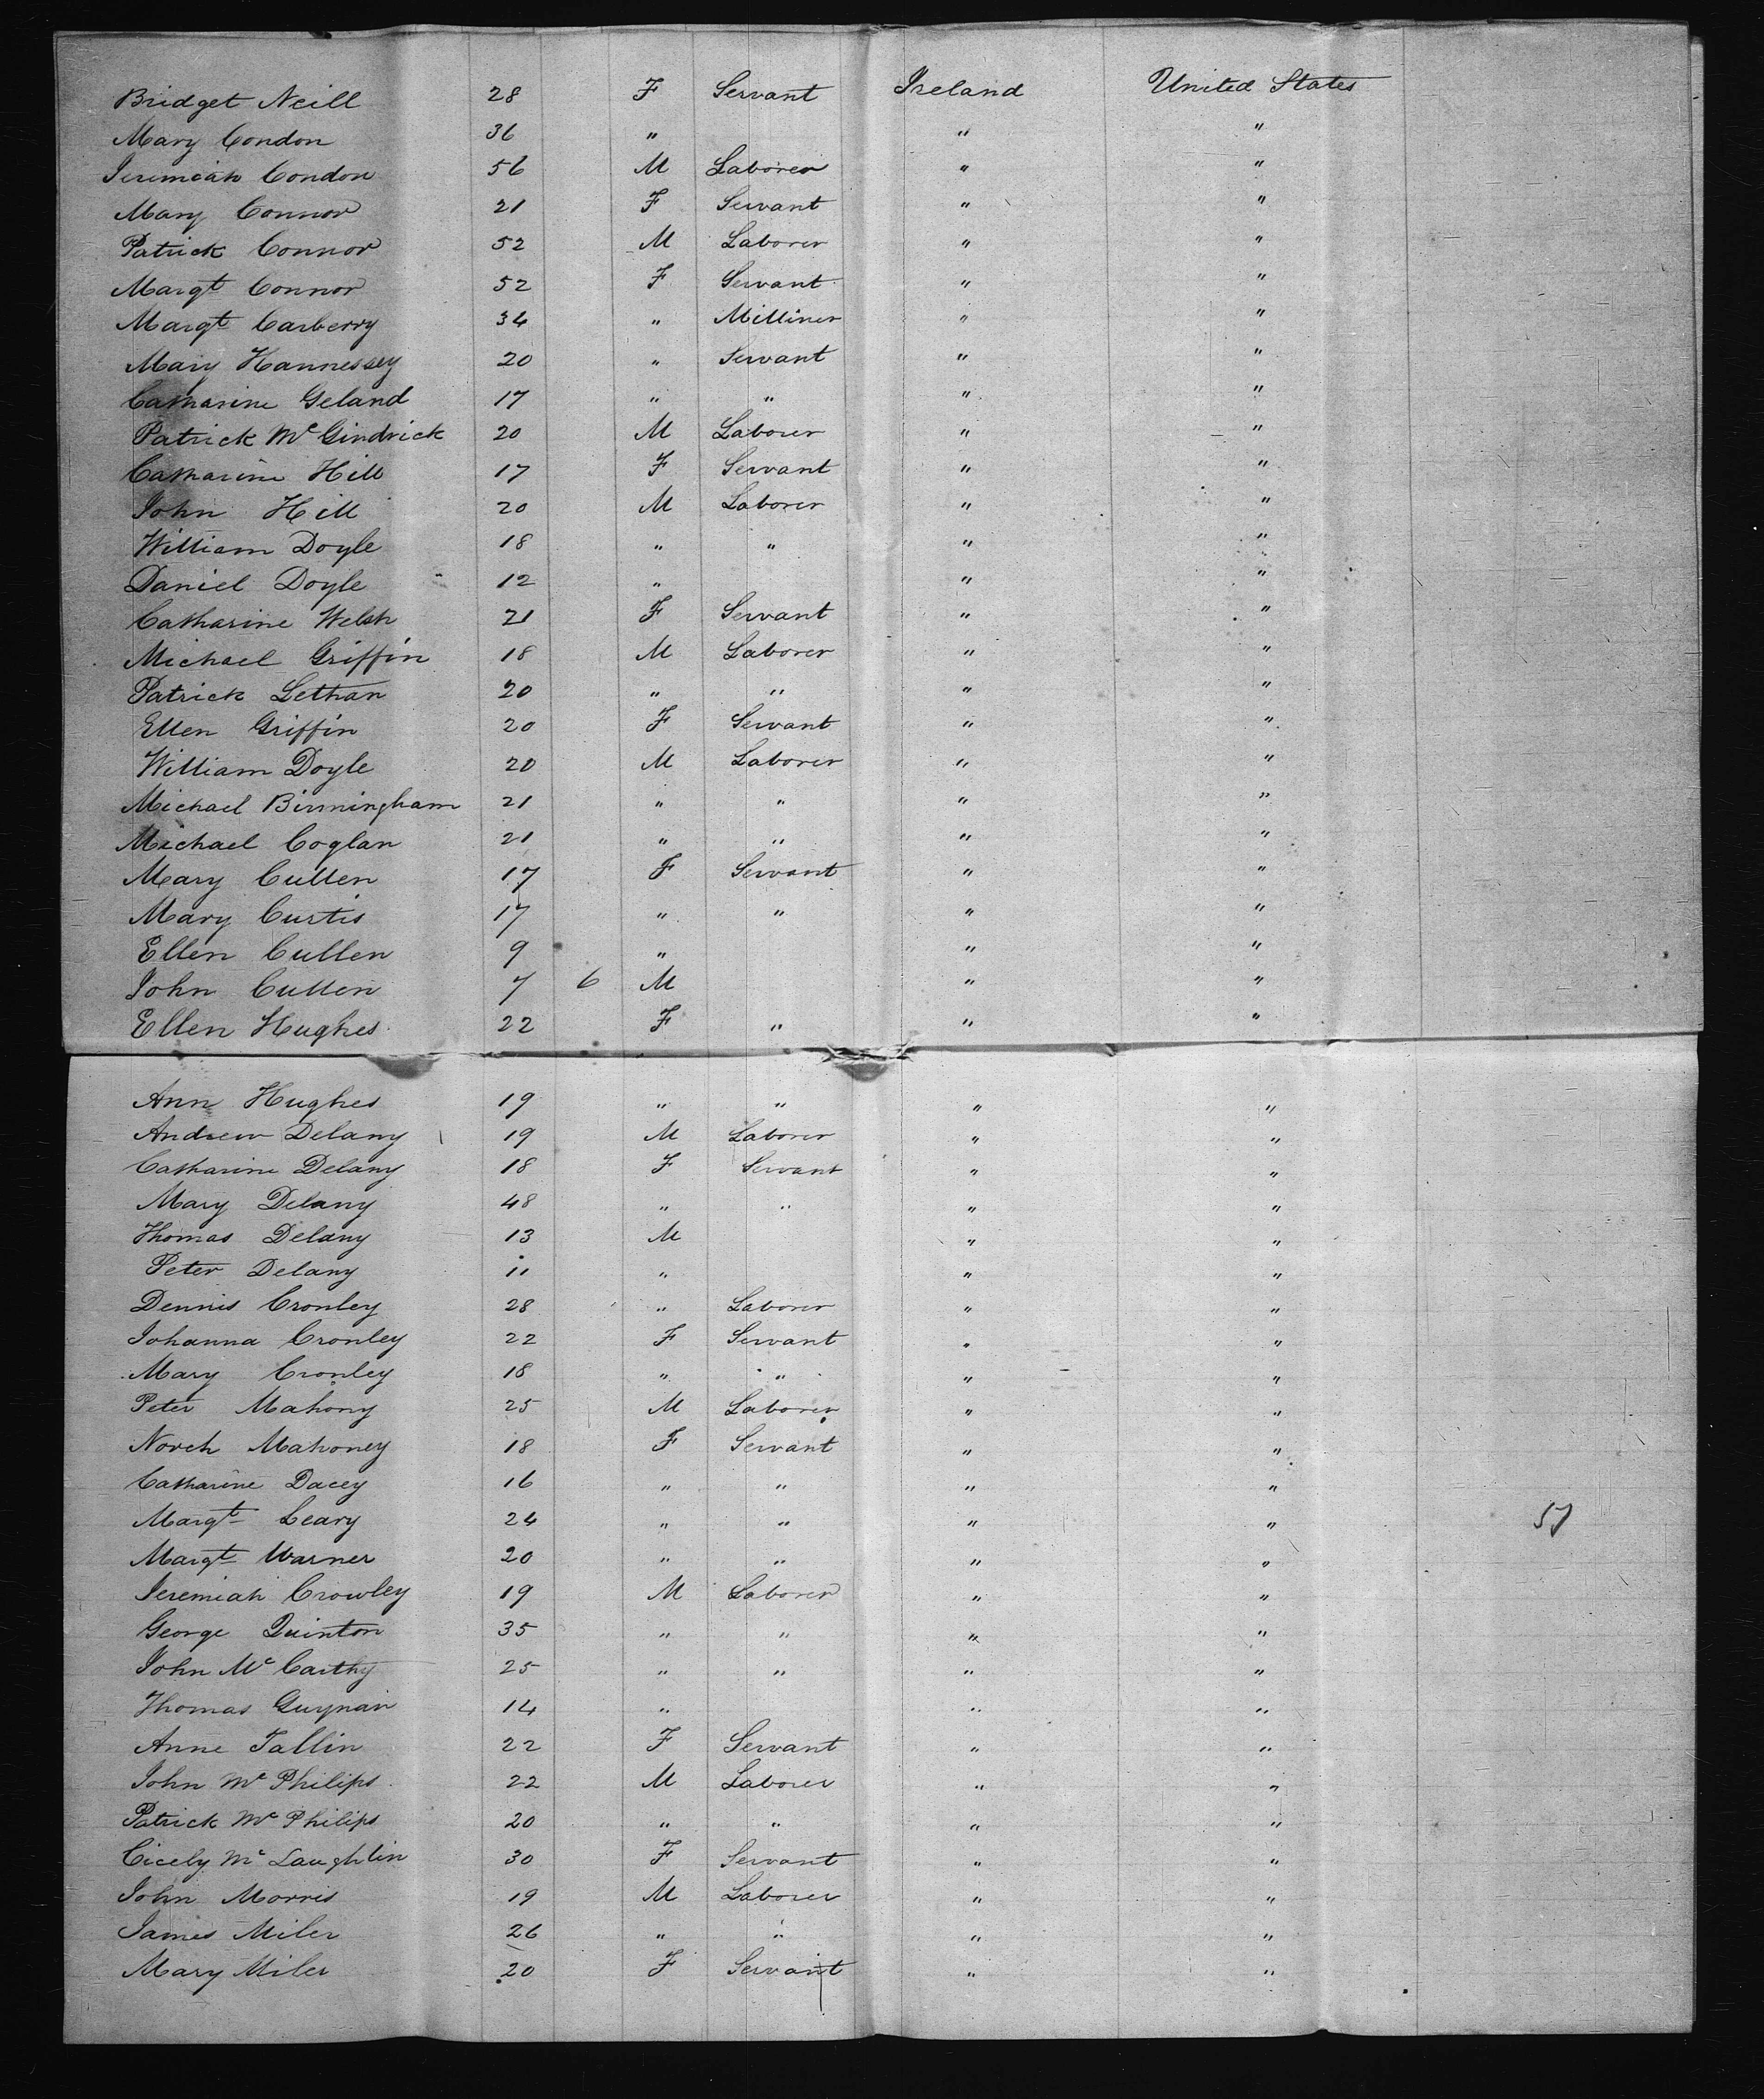 Bridget Neill 28 F Servant Ireland United States
Mary Condon 36 " " "
Jeremiah Condon 56 M Laborer " "
Mary Connor 21 F Servant " "
Patrick Connor 52 M Laborer " "
Margt Connor 52 F Servant " "
Margt Carberry 34 " Milliner " "
Mary Hannessey 20 " Servant " "
Catharine Geland 17 " " " "
Patrick Mc Gindrick 20 M Laborer " "
Catharine Hill 17 F Servant " "
John Hill 20 M Laborer " "
William Doyle 18 " " " "
Daniel Doyle 12 " " "
Catharine Welsh 21 F Servant " "
Michael Griffin 18 M Laborer " "
Patrick Lethan 20 " " " "
Ellen Griffin 20 F Servant " "
William Doyle 20 M Laborer " "
Michael Birmingham 21 " " " "
Michael Coglan 21 " " " "
Mary Cullen 17 F Servant " "
Mary Curtis 17 " " " "
Ellen Cullen 9 " " "
John Cullen 7 6 M " "
Ellen Hughes 22 F " " "
Ann Hughes 19 " " " "
Andrew Delany 19 M Laborer " "
Catharine Delany 18 F Servant " "
Mary Delany 48 " " " "
Thomas Delany 13 M " "
Peter Delany 11 " " "
Dennis Cronley 28 " Laborer " "
Johanna Cronley 22 F Servant " "
Mary Cronley 18 " " " "
Peter Mahony 25 M Laborer " "
Norch Mahoney 18 F Servant " "
Catharine Dacey 16 " " " "
Margt Leary 24 " " " " 57
Margt Warner 20 " " " "
Jeremiah Crowley 19 M Laborer " "
George Quinton 35 " " " "
John Mc Carthy 25 " " " "
Thomas Guynan 14 " " "
Anne Tallin 22 F Servant " "
John Mc Philips 22 M Laborer " "
Patrick Mc Philips 20 " " " "
Cicely Mc Laughlin 30 F Servant " "
John Morris 19 M Laborer " "
James Miler 26 " " " "
Mary Miler 20 F Servant " "